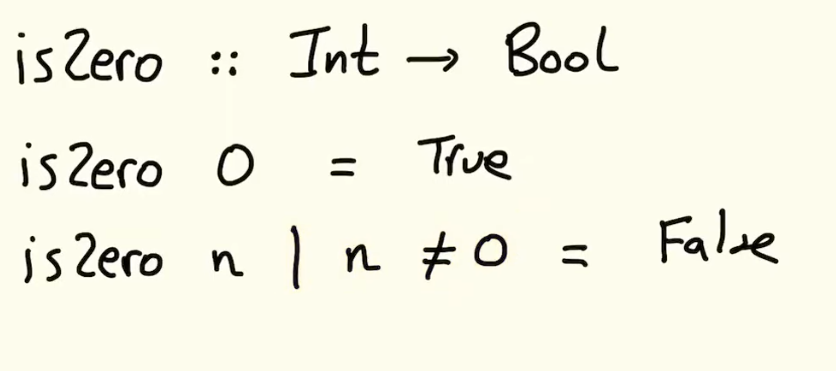 isZero :: Int → Bool
isZero 0 = True
isZero n | n ≠ 0 = False